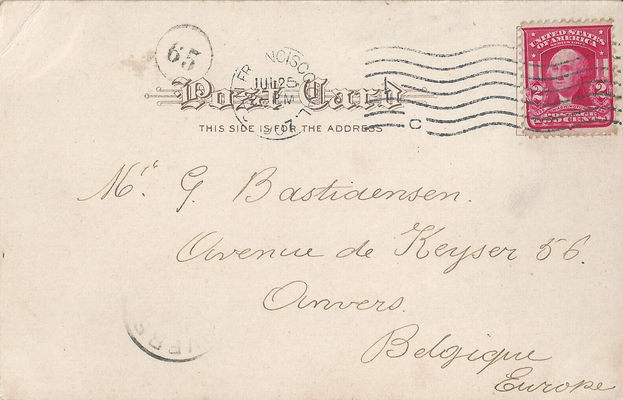 65
FR NCISCO
JUL 25
M
07
C
UNITED STATES
OF AMERICA
2 2
TWO CENTS
Post Card
THIS SIDE IS FOR THE ADDRESS
Mr G. Bastiaensen.
Avenue de Keyser 56.
Anvers.
Belgique
Europe
VERS